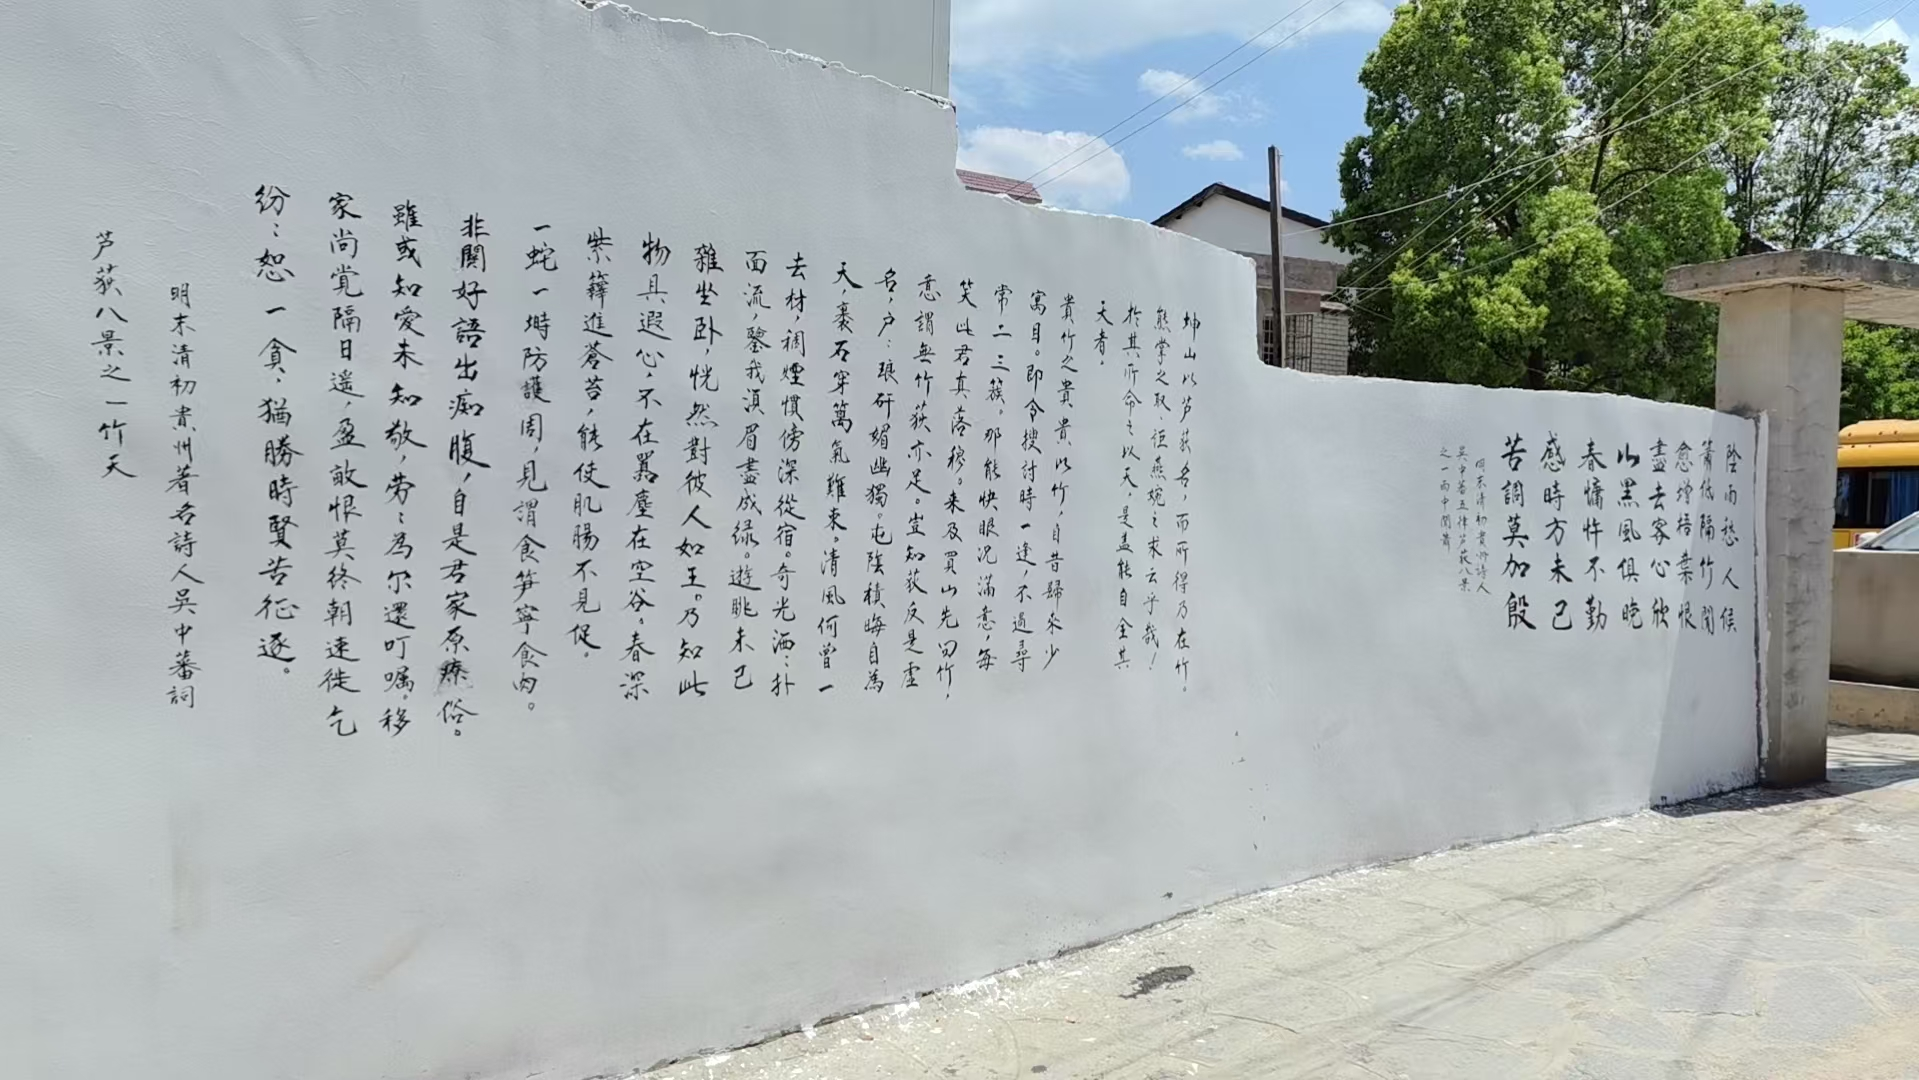 陰雨愁人候
簫低隔竹聞
愈增梧葉恨
盡去客心欣
山黑風俱晚
春慵忤不勤
感時方未已
苦調莫加殷
明末清初貴州詩人
吳中蕃五律芦荻八景
之一雨中閒簫
坤山以芦荻名，而所得乃在竹。
熊掌之取，怔燕婉之求云乎哉！
於其所命之以天，是盖能自全其
天者。
貴竹之貴貴以竹，自昔歸來少
寓目。即令搜討時一逢，不過尋
常二三簇。那能快眼況滿意，每
笑此君真落穆。来及買山先曰竹，
意謂無竹荻亦足。豈知荻反是虚
名，户：琅玕媚幽獨。屯陰積晦自為
天，裹石穿篱氣難束。清風何曾一
去材，稠煙慣傍深從宿。奇光洒：扑
面流，鑒我湏眉盡成绿。遊眺未已
雜坐卧，恍然對彼人如玉。乃知此
物具遐心，不在嚣塵在空谷。春深
紫籜進蒼苔，能使肌腸不見促。
一蛇一塒防護周，見謂食笋寧食肉。
非關好語出痴腹，自是君家原療俗。
雖或知愛未知敬，劳：為尔還叮嘱。移
家尚覚隔日遥，盈畝恨莫终朝速徙乞
纷：恕一貪，猶勝時賢苦征逐。
明末清初贵州著名詩人吳中蕃詞
芦荻八景之一竹天